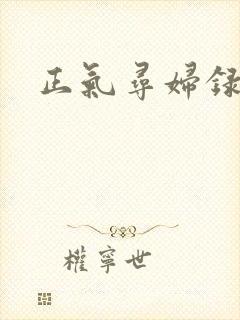 正氣尋婦録
權寧世